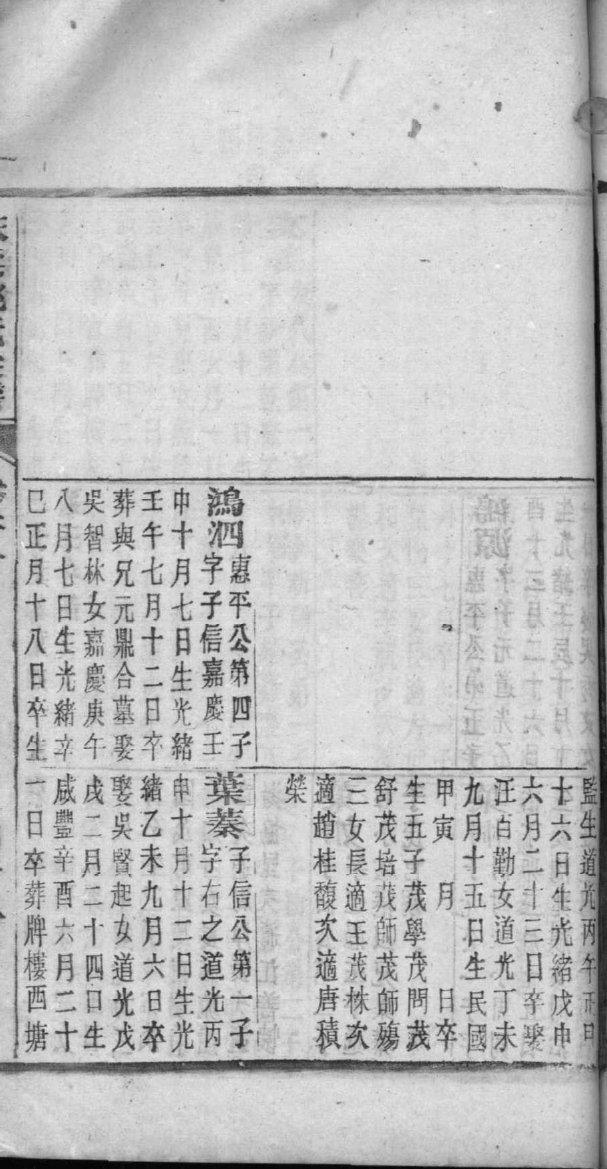 監生道光丙午正月
十六日生光緒戊申
六月二十三日卒娶
汪百勤女道光丁未
九月十五日生民國
甲寅 月 日卒
生五子茂學茂問茂
舒茂培茂師茂師殤
三女長適王茂株次
適趙桂馥次適唐積
榮
鴻泗惠平公第四子
字子信嘉慶壬
申十月七日生光緒
壬午七月十二日卒
葬與兄元鼎合墓娶
吳智林女嘉慶庚午
八月七日生光緒辛
巳正月十八日卒生一
葉蓁子信公第一子
字右之道光丙
申十月十二日生光
緒乙未九月六日卒
娶吳賢起女道光戊
戌二月二十四口生
咸豐辛酉六月二十
一日卒葬牌樓西塘